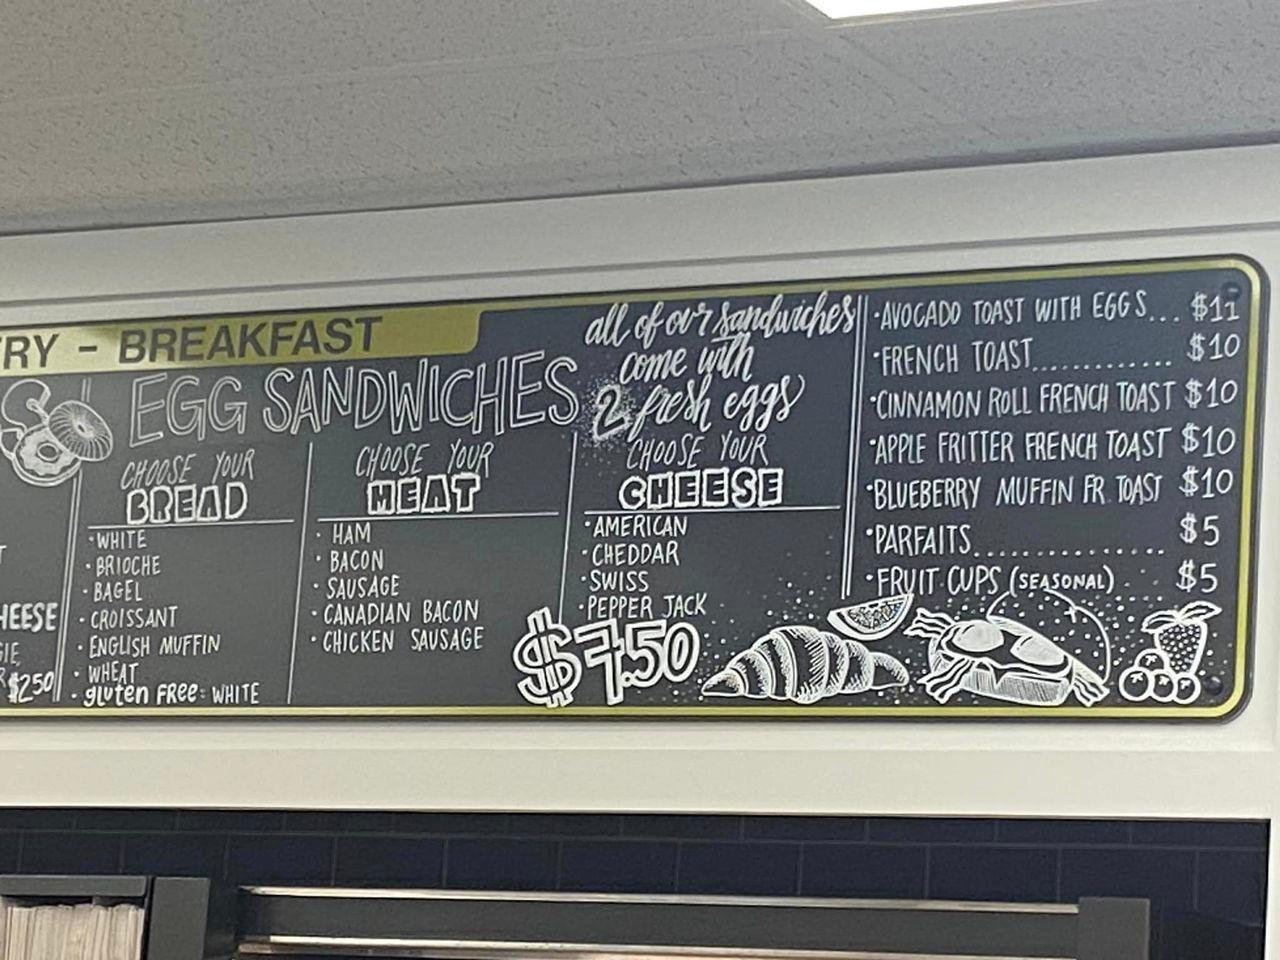 RY - BREAKFAST
HEESE
$250
EGG SANDWICHES
all of our sandwiches
come with
2 fresh eggs
CHOOSE YOUR
BREAD
• WHITE
• BRIOCHE
• BAGEL
• CROISSANT
• ENGLISH MUFFIN
• WHEAT
• gluten FREE: WHITE
CHOOSE YOUR
MEAT
• HAM
• BACON
• SAUSAGE
• CANADIAN BACON
• CHICKEN SAUSAGE
CHOOSE YOUR
CHEESE
• AMERICAN
• CHEDDAR
• SWISS
• PEPPER JACK
$7.50
• AVOCADO TOAST WITH EGGS... $11
• FRENCH TOAST............. $10
• CINNAMON ROLL FRENCH TOAST $10
• APPLE FRITTER FRENCH TOAST $10
• BLUEBERRY MUFFIN FR. TOAST $10
• PARFAITS................. $5
• FRUIT CUPS (SEASONAL)... $5